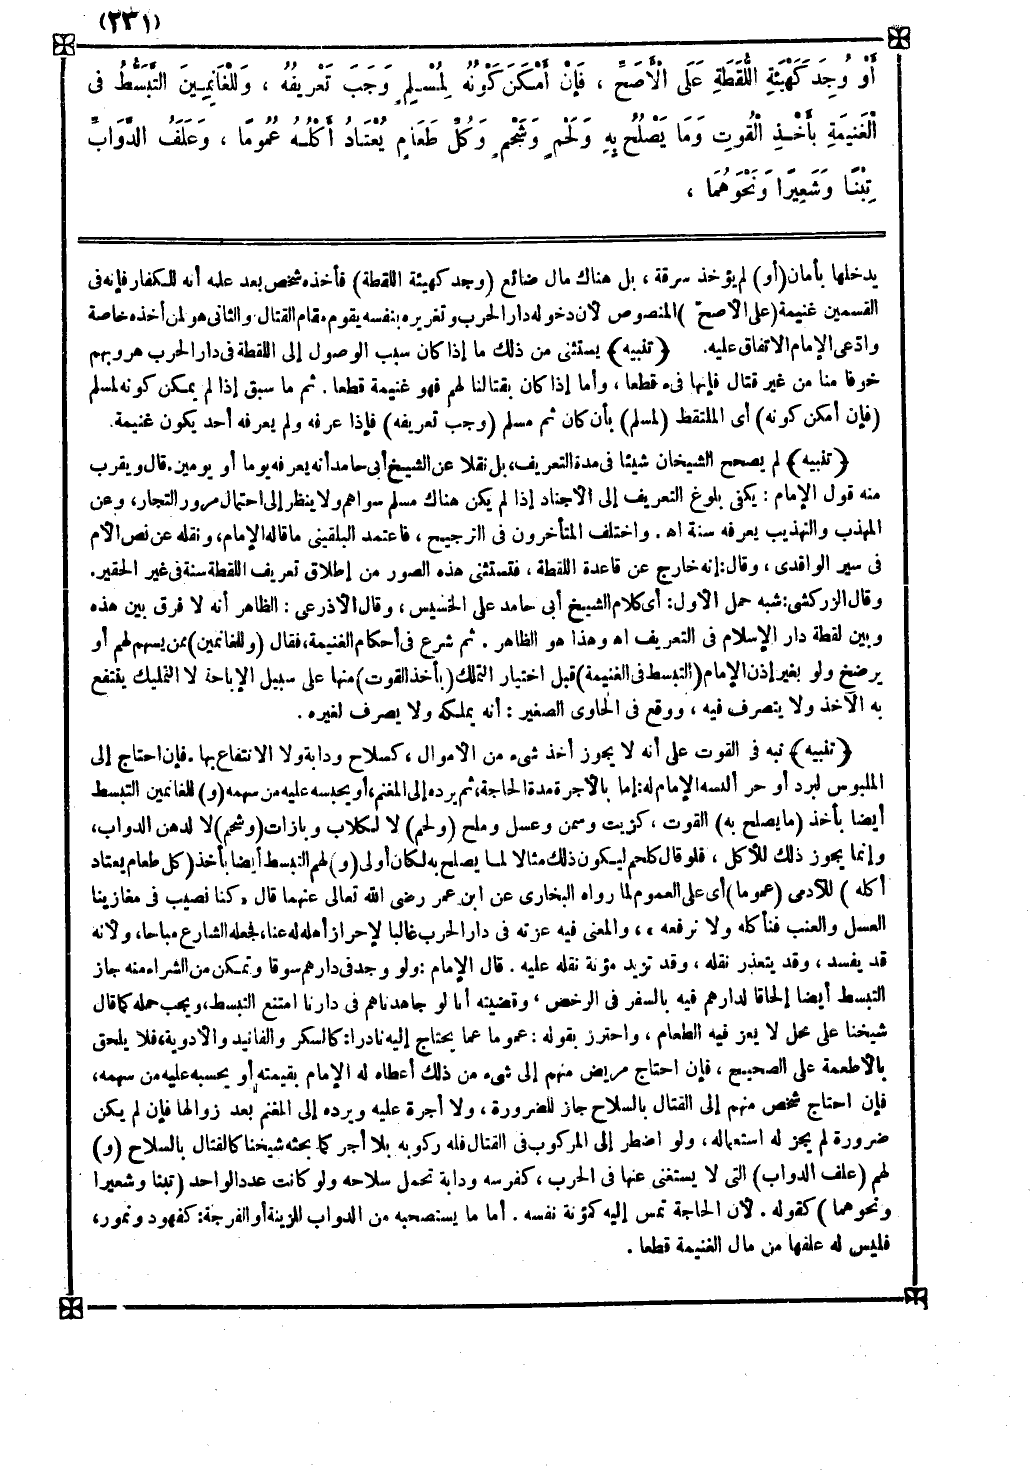 (٢٣١)
أَوْ وُجِدَ كَهَيْئَةِ اللُّقَطَةِ عَلَى الْأَصَحِّ ، فَإِنْ أَمْكَنَ كَوْنُهُ لِمُسْلِمٍ وَجَبَ تَعْرِيفُهُ ، وَلِلْغَانِمِينَ التَّبَسُّطُ فى
الْغَنِيمَةِ بِأَخْذِ الْقُوتِ وَمَا يَصْلُحُ بِهِ وَلَحْمٍ وَشَحْمٍ وَكُلِّ طَعَامٍ يُعْتَادُ أَكْلُهُ عُمُومًا ، وَعَلَفُ الدَّوَابِّ
تِبْنًا وَشَعِيرًا وَنَحْوُهُمَا ،
يدخلها بأمان (أو) لم يؤخذ سرقة ، بل هناك مال ضائع (وجد كهيئة اللقطة) فأخذه شخص بعد علمه أنه للكفار فإنه فى
القسمين غنيمة (على الأصح) المنصوص لأن دخوله دار الحرب وتغريره بنفسه يقوم مقام القتال والثانى هو لمن أخذه خاصة
وادّعى الإمام الاتفاق عليه. ﴿ تنبيه﴾ يستثنى من ذلك ما إذا كان سبب الوصول إلى اللقطة فى دار الحرب هروبهم
خوفا منا من غير قتال فإنها فىء قطعا ، وأما إذا كان بقتالنا لهم فهو غنيمة قطعا . ثم ما سبق إذا لم يمكن كونه لمسلم
(فإن أمكن كونه) أى الملتقط (لمسلم) بأن كان ثم مسلم (وجب تعريفه) فإذا عرفه ولم يعرفه أحد يكون غنيمة.
﴿ تنبيه﴾ لم يصحح الشيخان شيئا فى مدة التعريف، بل نقلا عن الشيخ أبى حامد أنه يعرفه يوما أو يومين. قال ويقرب
منه قول الإمام : يكفى بلوغ التعريف إلى الأجناد إذا لم يكن هناك مسلم سواهم ولا ينظر إلى احتمال مرور التجار، وعن
المهذب والتهذيب يعرفه سنة اه . واختلف المتأخرون فى الترجيح ، فاعتمد البلقينى ما قاله الإمام، ونقله عن نص الأم
فى سير الواقدى ، وقال: إنه خارج عن قاعدة اللقطة ، فتستثنى هذه الصور من إطلاق تعريف اللقطة سنة فى غير الحقير.
وقال الزركشى: شبه حمل الأول: أى كلام الشيخ أبى حامد على الخسيس ، وقال الأذرعى : الظاهر أنه لا فرق بين هذه
وبين لقطة دار الإسلام فى التعريف اه وهذا هو الظاهر . ثم شرع فى أحكام الغنيمة، فقال (وللغانمين) ممن يسهم لهم أو
يرضخ ولو بغير إذن الإمام (التبسط فى الغنيمة) قبل اختيار التملك (بأخذ القوت) منها على سبيل الإباحة لا التمليك ينتفع
به الآخذ ولا يتصرف فيه ، ووقع فى الحاوى الصغير : أنه يملكه ولا يصرف لغيره .
﴿ تنبيه﴾ نبه فى القوت على أنه لا يجوز أخذ شىء من الأموال ، كسلاح ودابة ولا الانتفاع بها . فإن احتاج إلى
الملبوس لبرد أو حر ألبسه الإمام له: إما بالأجرة مدة الحاجة، ثم يرده إلى المغنم، أو يحبسه عليه من سهمه (و) للغانمين التبسط
أيضا بأخذ (ما يصلح به) القوت ، كزيت وسمن وعسل وملح (ولحم) لا لكلاب وبازات (وشحم) لا لدهن الدواب،
وإنما يجوز ذلك للأكل ، فلو قال كلحم ليكون ذلك مثالا لما يصلح به لكان أولى (و) لهم التبسط أيضا بأخذ (كل طعام يعتاد
أكله ) للآدمى (عموما) أى على العموم لما رواه البخارى عن ابن عمر رضى الله تعالى عنهما قال «كنا نصيب فى مغازينا
العسل والعنب فنأكله ولا نرفعه » ، والمعنى فيه عزته فى دار الحرب غالبا لإحراز أهله له عنا، فجعله الشارع مباحا، ولأنه
قد يفسد ، وقد يتعذر نقله ، وقد تزيد مؤنة نقله عليه . قال الإمام : ولو وجد فى دارهم سوقا وتمكن من الشراء منه جاز
التبسط أيضا إلحاقا لدارهم فيه بالسفر فى الرخص ، وقضيته أما لو جاهدناهم فى دارنا امتنع التبسط، ويجب حمله كما قال
شيخنا على محل لا يعز فيه الطعام ، واحترز بقوله : عموما عما يحتاج إليه نادرا: كالسكر والفانيد والأدوية، فلا يلحق
بالأطعمة على الصحيح ، فإن احتاج مريض منهم إلى شىء من ذلك أعطاه له الإمام بقيمته أو يحسبه عليه من سهمه،
فإن احتاج شخص منهم إلى القتال بالسلاح جاز للضرورة ، ولا أجرة عليه ويرده إلى المغنم بعد زوالها فإن لم يكن
ضرورة لم يجز له استعماله، ولو اضطر إلى المركوب فى القتال فله ركوبه بلا أجر كما بحثه شيخنا كالقتال بالسلاح (و)
لهم (علف الدواب) التى لا يستغنى عنها فى الحرب ، كفرسه ودابة تحمل سلاحه ولو كانت عدد الواحد (تبنا وشعيرا
ونحوهما ) كقوله . لأن الحاجة تمس إليه كمؤنة نفسه . أما ما يستصحبه من الدواب للزينة أو الفرجة: كفهود ونمور،
فليس له علفها من مال الغنيمة قطعا .